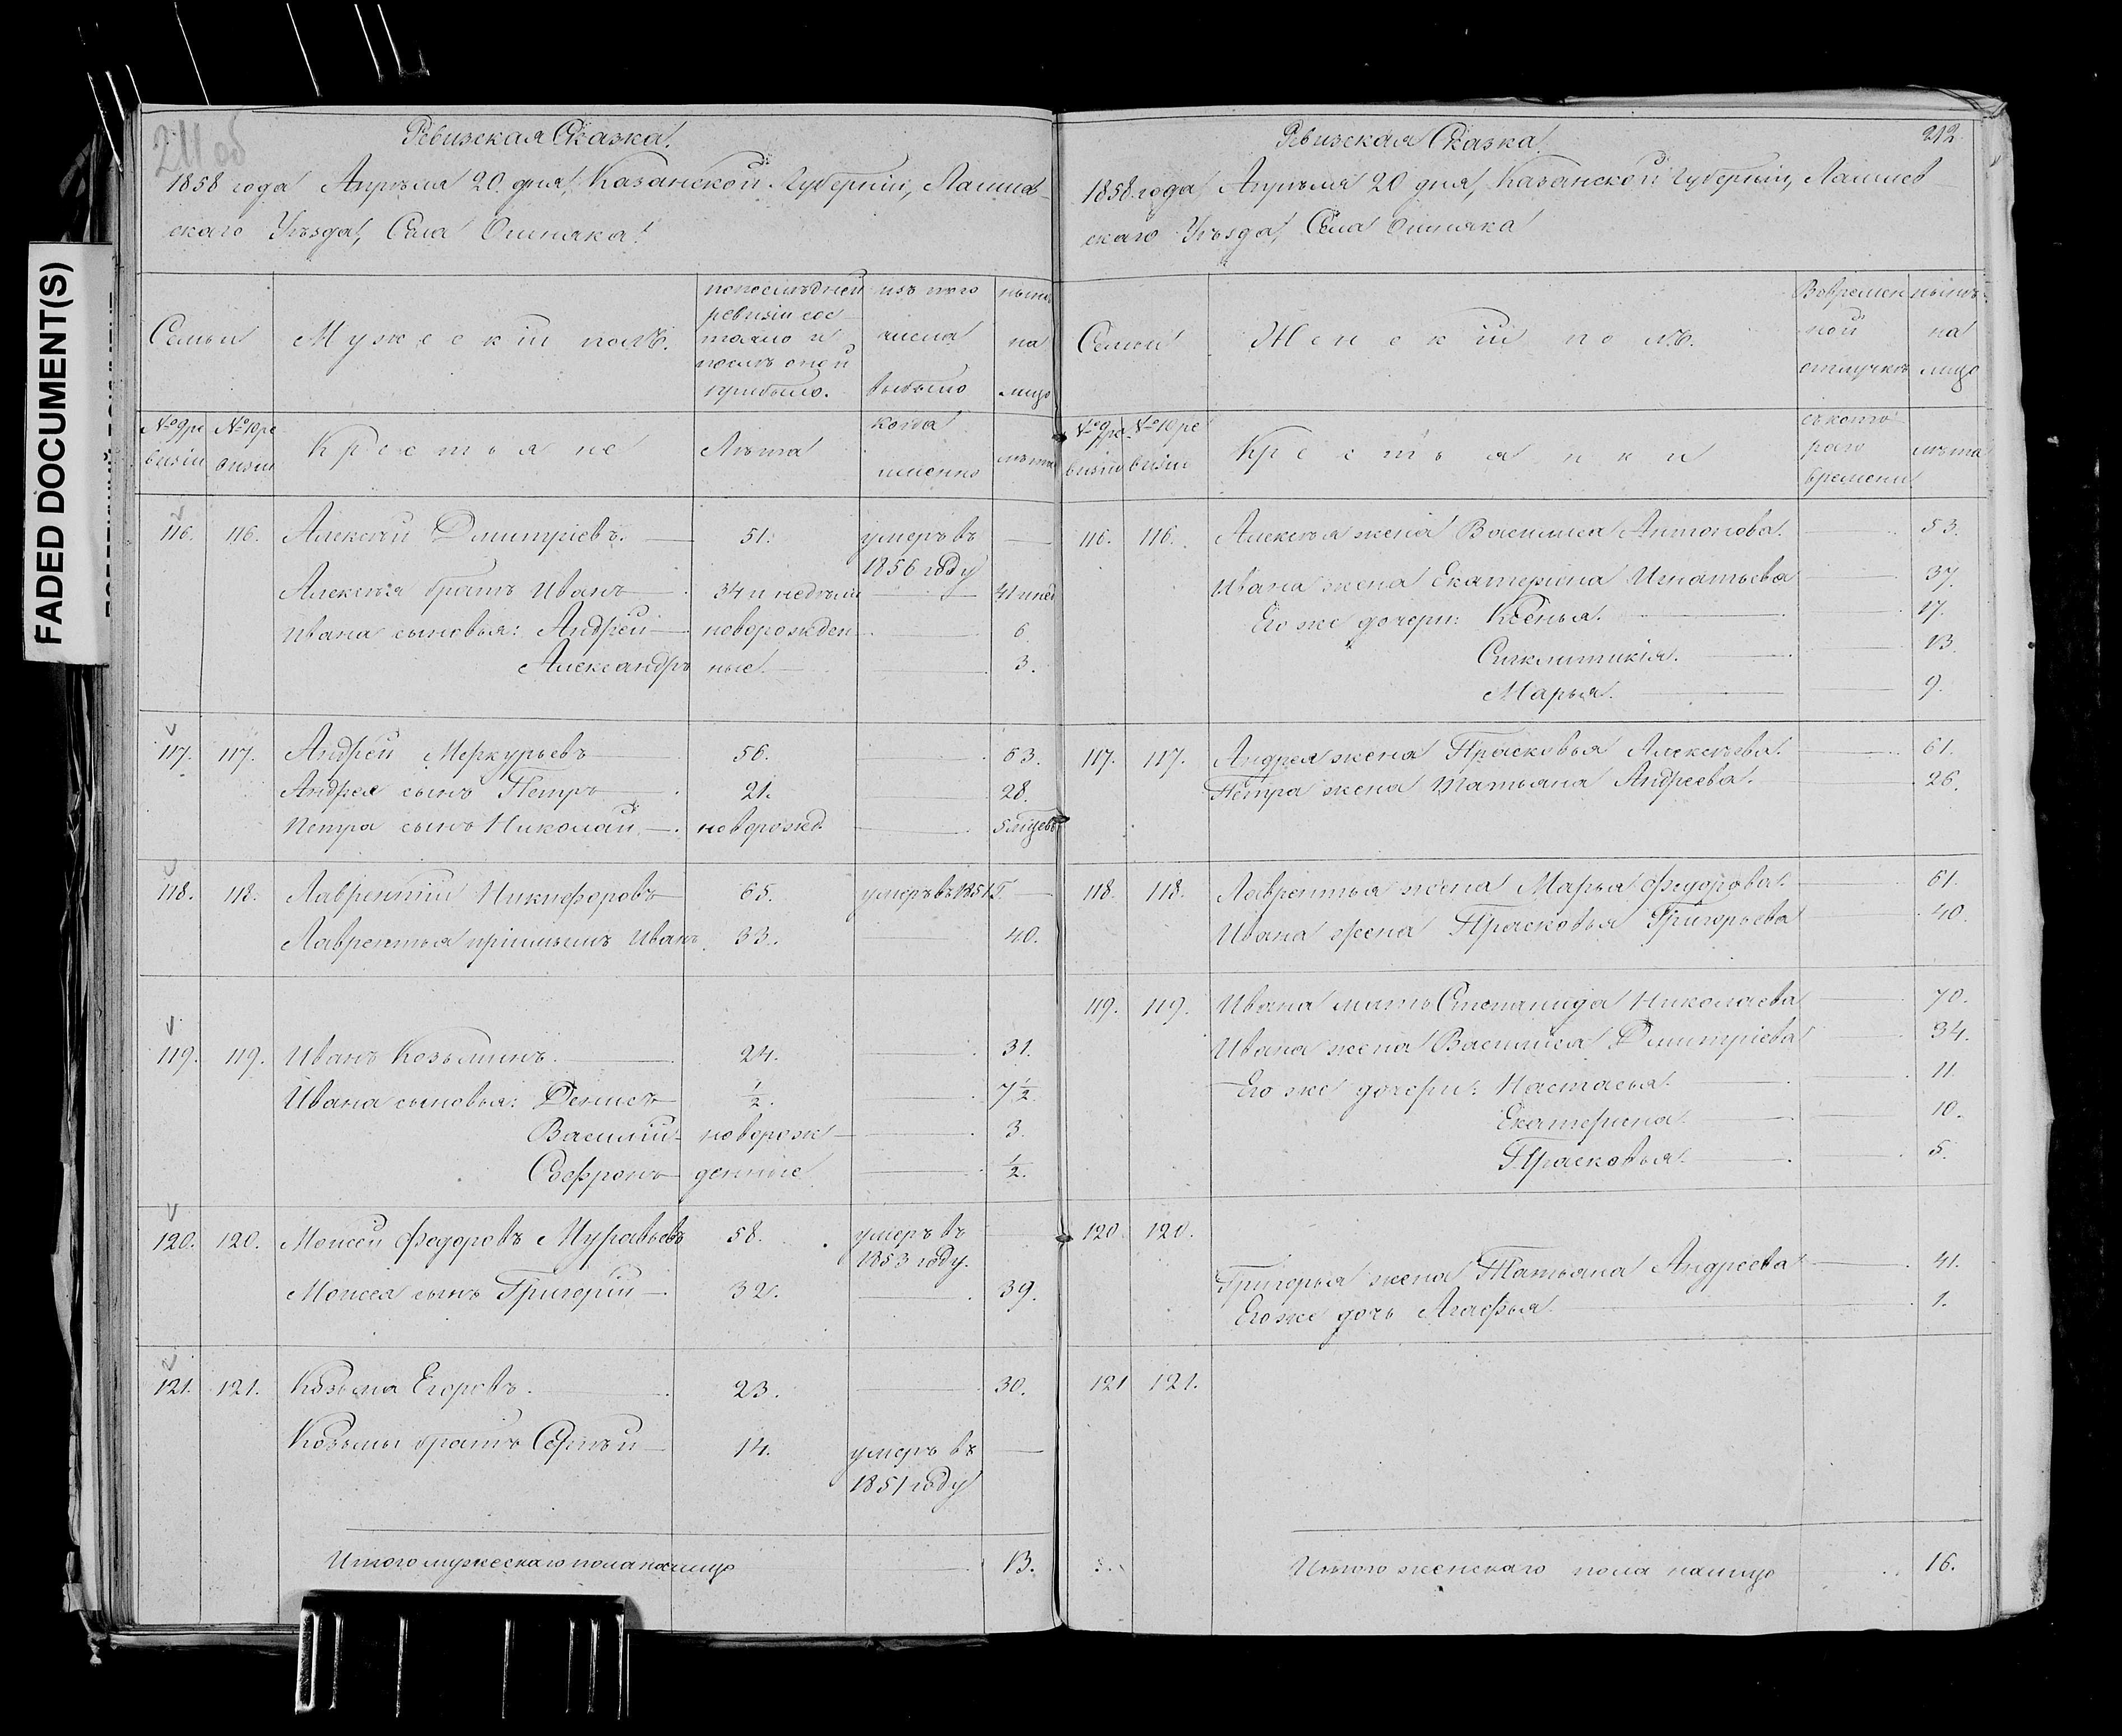 FADED DOCUMENT(S)
211 об
Ревизская Сказка.
1858 года Апрѣля 20. дня, Казанской Губерніи, Лаишев-
скаго Уѣзда, Села Ошняка.
Семьи
Мужескій полъ.
по послѣдней ревизіи состояло и послѣ оной прибыло.
изъ того числа выбыло
нынѣ на лицо
№ 9 ревизіи
№ 10 ревизіи
Крестьяне
Лѣта
когда именно
лѣта
116. 116. Алексѣй Дмитріевъ. 51. умеръ въ 1856 году
Алексѣя братъ Иванъ 34 и недѣли 41 и нед
Ивана сыновья: Андрей новорожден 6.
Александръ ные 3.
117. 117. Андрей Меркурьевъ 56. 63.
Андрея сынъ Петръ 21. 28.
Петра сынъ Николай новорожд. 5 мѣцевъ
118. 118. Лаврентій Никифоровъ 65. умеръ въ 1851 г.
Лаврентья пріимышъ Иванъ 33. 40.
119. 119. Иванъ Козьминъ. 24. 31.
Ивана сыновья: Денисъ ½. 7½
Василій новорож 3.
Софронъ денные ½.
120. 120. Моисей Федоровъ Муравьевъ 58. умеръ въ 1853 году.
Моисея сынъ Григорій 32. 39.
121. 121. Козьма Егоровъ. 23. 30.
Козьмы братъ Сергѣй 14. умеръ въ 1851 году
Итого мужескаго пола на лицо 13.
Ревизская Сказка.
212.
1858 года Апрѣля 20 дня, Казанской Губерніи, Лаишев-
скаго Уѣзда, Села Ошняка
Семьи
Женскій полъ.
Во временной отлучкѣ
нынѣ на лицо
№ 9 ре-визіи
№ 10 ревизіи
Крестьянки
съ котораго времени
лѣта
116. 116. Алексѣя жена Василиса Антонова. 53.
Ивана жена Екатерина Игнатьева 37.
Его же дочери: Ксенья. 17.
Сигклитикія. 13.
Марья. 9.
117. 117. Андрея жена Прасковья Алексѣева. 61.
Петра жена Татьяна Андреева. 26.
118. 118. Лаврентья жена Марья Федорова. 61.
Ивана жена Прасковья Григорьева 40.
119. 119. Ивана мать Степанида Николаева 70.
Ивана жена Василиса Дмитріева 34.
Его же дочери: Настасья. 11.
Екатерина. 10.
Прасковья. 5.
120. 120.
Григорья жена Татьяна Андреева 41.
Его же дочь Агафья. 1.
121 121.
Итого женскаго пола на лицо 16.